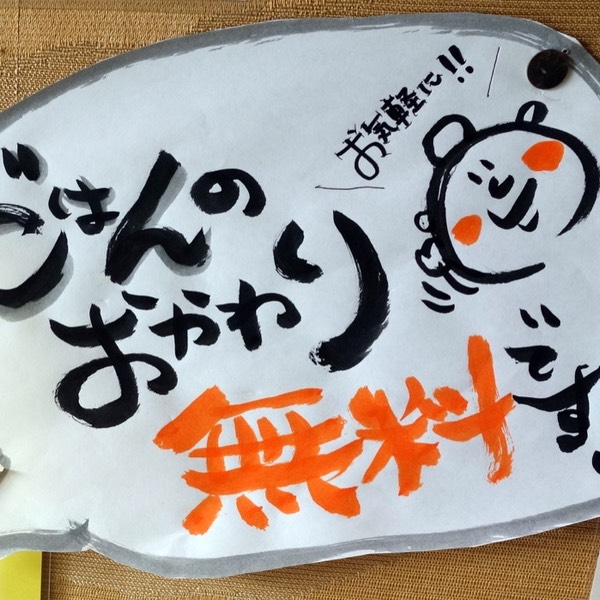 お気軽に!!
ごはんの
おかわり
無料です。